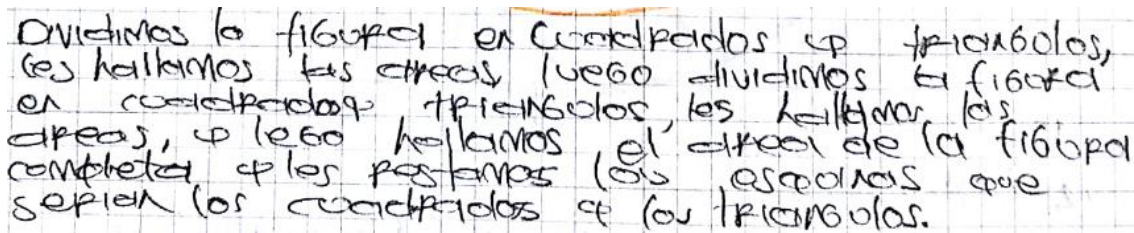 Dividimos la figura en cuadrados y triangolos,
les hallamos las areas, luego dividimos la figura
en cuadrados y triangolos, les hallamos las
areas, y lego hallamos el area de la figura
completa y les restamos las esquinas que
serian los cuadrados y los triangulos.